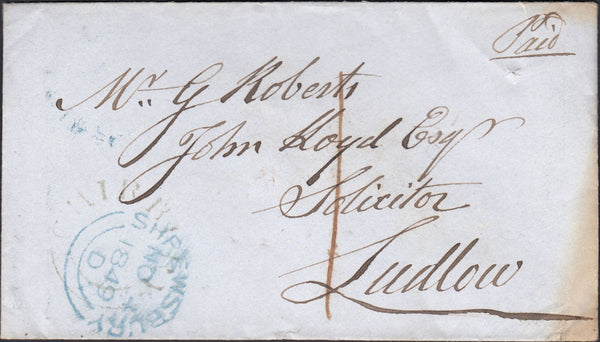 Paid
Mr. G Roberts
John Lloyd Esqr
Solicitor
Ludlow
1
SHREWSBURY
NO
1849
D